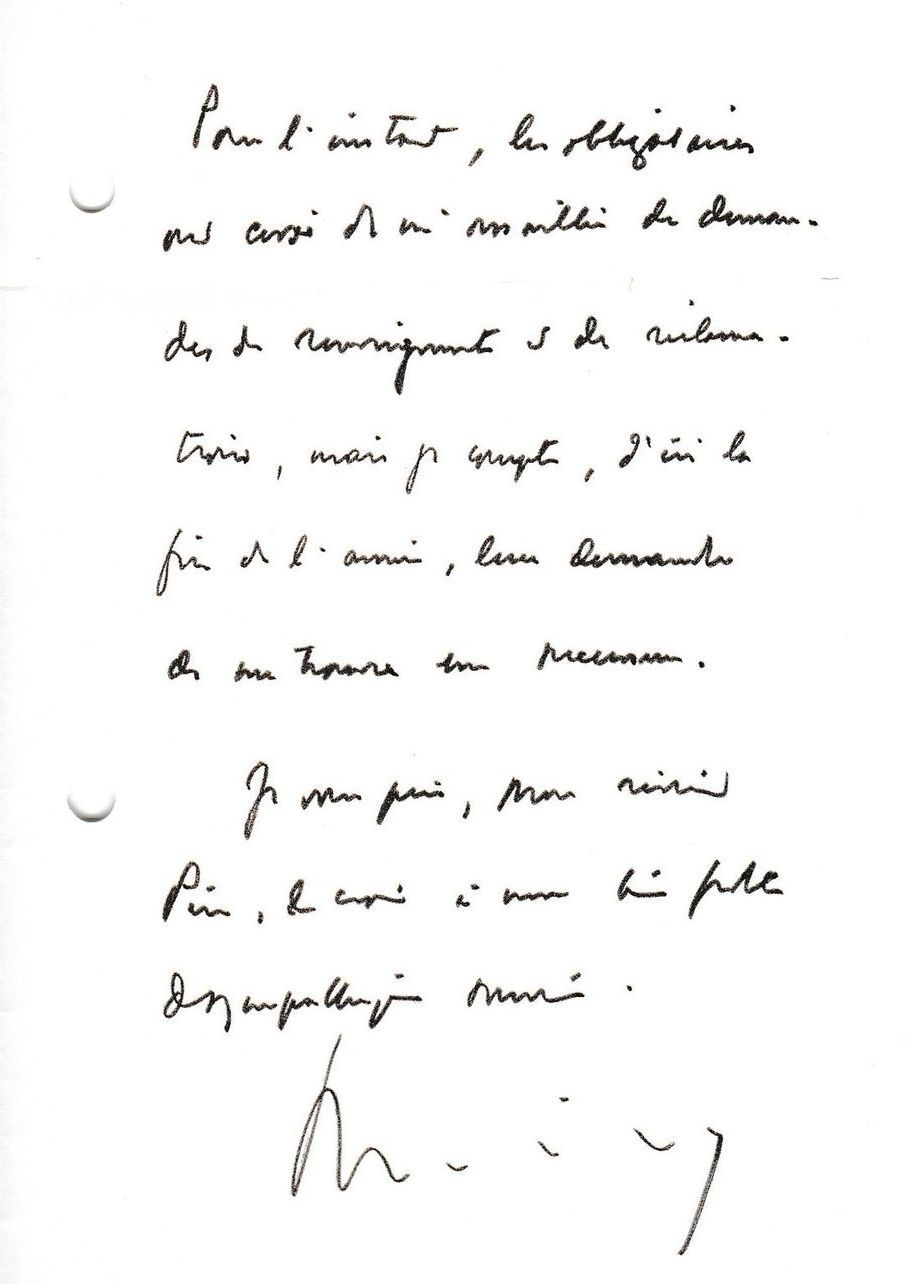 Pour l'instant, les obligataires
ont cessé de m'assaillir de deman-
des de renseignements et de réclama-
tions, mais je compte, d'ici la
fin de l'année, leur demander
de me trouver un successeur.
Je vous prie, mon révérend
Père, de croire à mon bien fidèle
et sympathique souvenir.